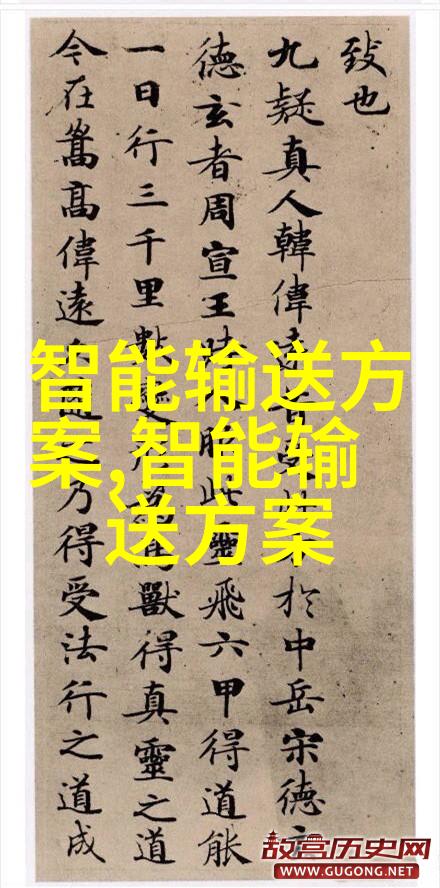 致也
九疑真人韓偉遠昔於中岳宋德
德玄者周宣王時服此靈飛六甲得道能
一日行三千里數變獸得真靈之道
今在嵩高偉遠乃得受法行之道成
智能输送方
案,智能输
送方案
故宫历史网
WWW.GUGONG.NET